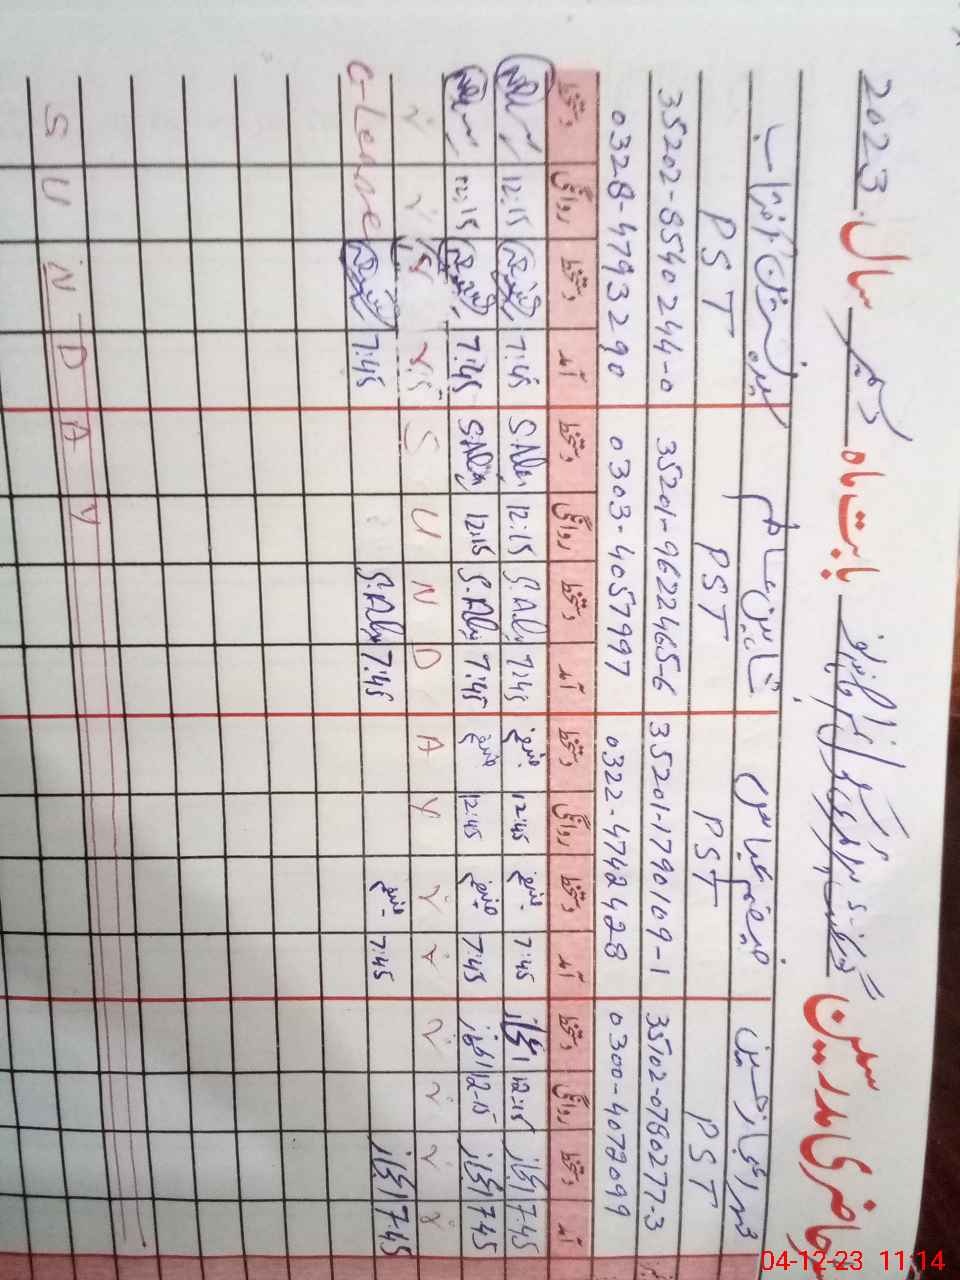 حاضری مدرسین گورنمنٹ گرلز پرائمری سکول بابت ماہ دسمبر سال 2023
محمد اعجاز حسین شاہین اسلم
PST PST PST PST
35102-0780277-3 35201-1790109-1 35201-9622465-6 35202-8540244-0
0300-4072099 0322-4742428 0303-4057997 0328-4793290
آمد دستخط روانگی دستخط آمد دستخط روانگی دستخط آمد دستخط روانگی دستخط آمد دستخط روانگی دستخط
7:45 اعجاز 12:15 اعجاز 7:45 12:45 7:45 S.Ali 12:15 S.Ali 7:45 12:15
7:45 اعجاز 12:15 اعجاز 7:45 12:45 7:45 S.Ali 12:15 S.Ali 7:45 12:15
S U N D A Y
7:45 اعجاز 7:45 7:45 S.Ali 7:45 C-Leave
S U N D A Y
04-12-23 11:14